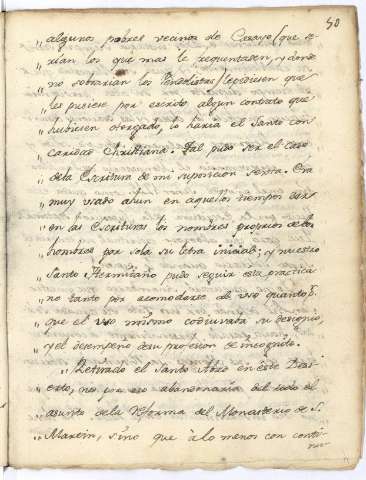 50
„ algunos pobres vecinos de Casayo (que se-
„ rian los que mas le frequentasen, y donde
„ no sobrarian los Pendolistas) le pidiesen que
„ les pusiese por escrito algun contrato que
„ hubiesen otorgado, lo haria el Santo con
„ caridad Christiana. Tal pudo ser el caso
„ de la Escritura de mi suposicion sexta. Era
„ muy usado aun en aquellos tiempos
„ en las Escrituras los nombres propios de los
„ hombres por sola su letra inicial; y nuestro
„ Santo Hermitaño pudo seguir esta practica
„ no tanto por acomodarse al uso quanto p.r
„ que el uso mismo coadiuvaba su designio,
„ y el desempeño de su profesion de incognito.
„ Retirado el Santo Abad en este Desi-
„ erto, no por eso abandonaria del todo el
„ asunto de la Reforma del Monasterio de S.
„ Martin, sino que à lo menos con conti-